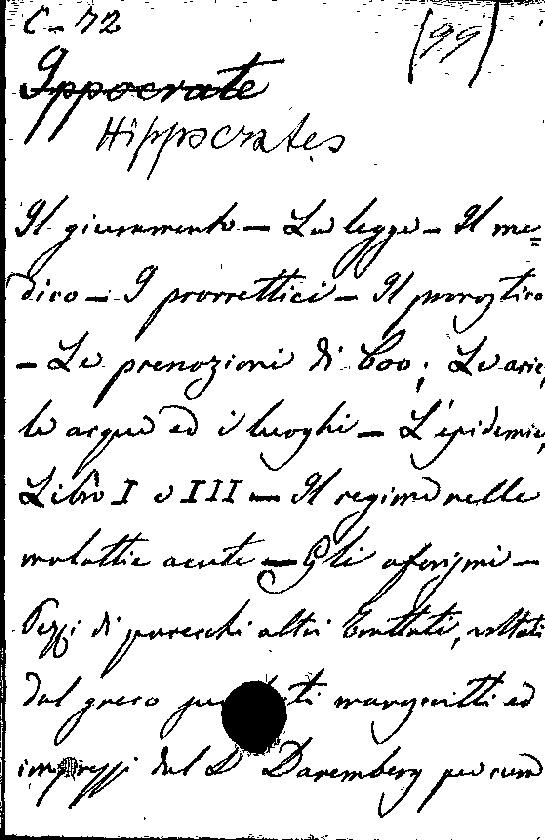 C-72
(99)
Ippocrate
Hippocrates
Il giuramento — La legge — Il me=
dico — I prorrettici — Il pronostico
— Le prenozioni di Coo; Le arie,
le acque ed i luoghi — L'epidemie,
Libro I e III — Il regime nelle
malattie acute — Gli aforismi —
Pezzi di parecchi altri trattati, voltati
dal greco ti manoscritti ed
impressi dal D Daremberg per cura